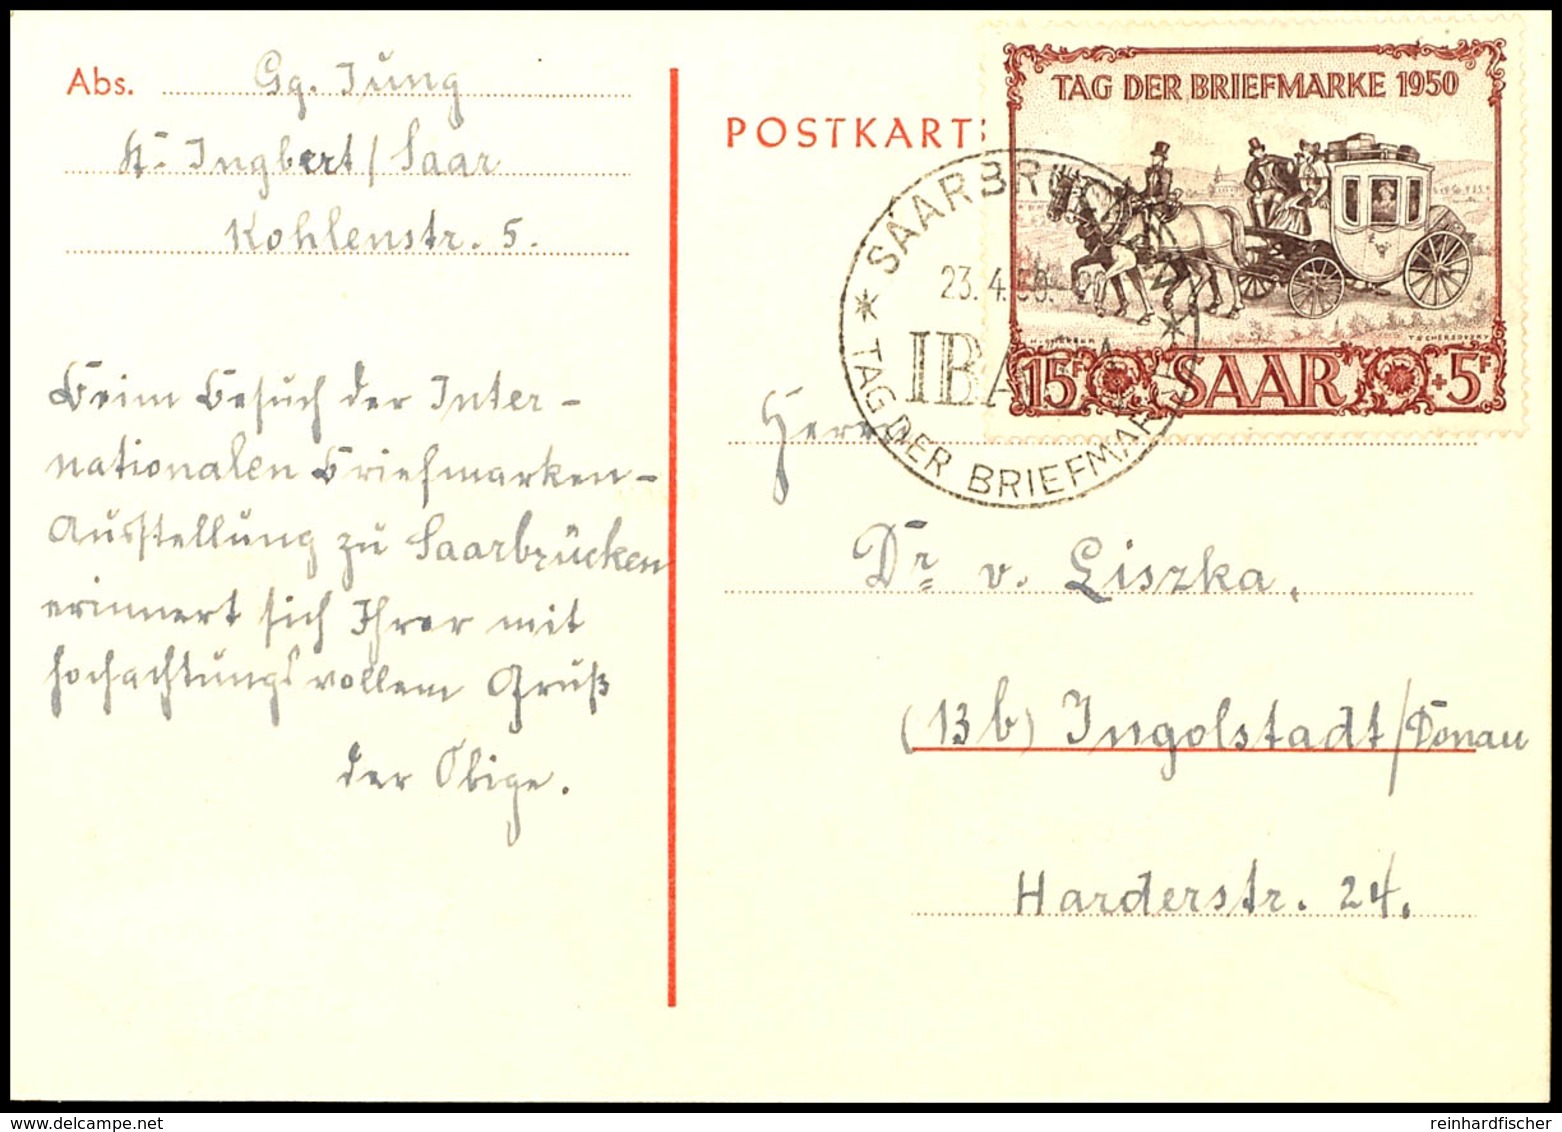 Abs. Gg. Jung
St. Ingbert / Saar
Kohlenstr. 5.
Beim Besuch der Inter-
nationalen Briefmarken-
Ausstellung zu Saarbrücken
erinnert sich Ihrer mit
hochachtungsvollem Gruß
der Obige.
POSTKART
TAG DER BRIEFMARKE 1950
15F SAAR +5F
SAARBRÜCKEN
23.4.50. 20
IBASA
TAG DER BRIEFMARKE
Herrn
Dr. v. Liszka,
(13b) Ingolstadt/Donau
Harderstr. 24.
reinhardfischer